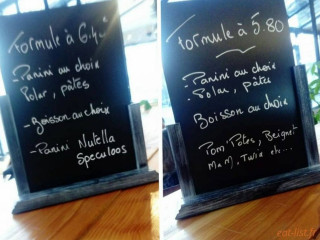 Formule à 6.4
- Panini au choix
Polar, pâtes
- Boisson au choix
- Panini Nutella
Speculoos
Formule à 5.80
- Panini au choix
- Polar, pâtes
Boisson au choix
Pom Potes, Beignet
M&M, Twix etc...
eat-list.fr